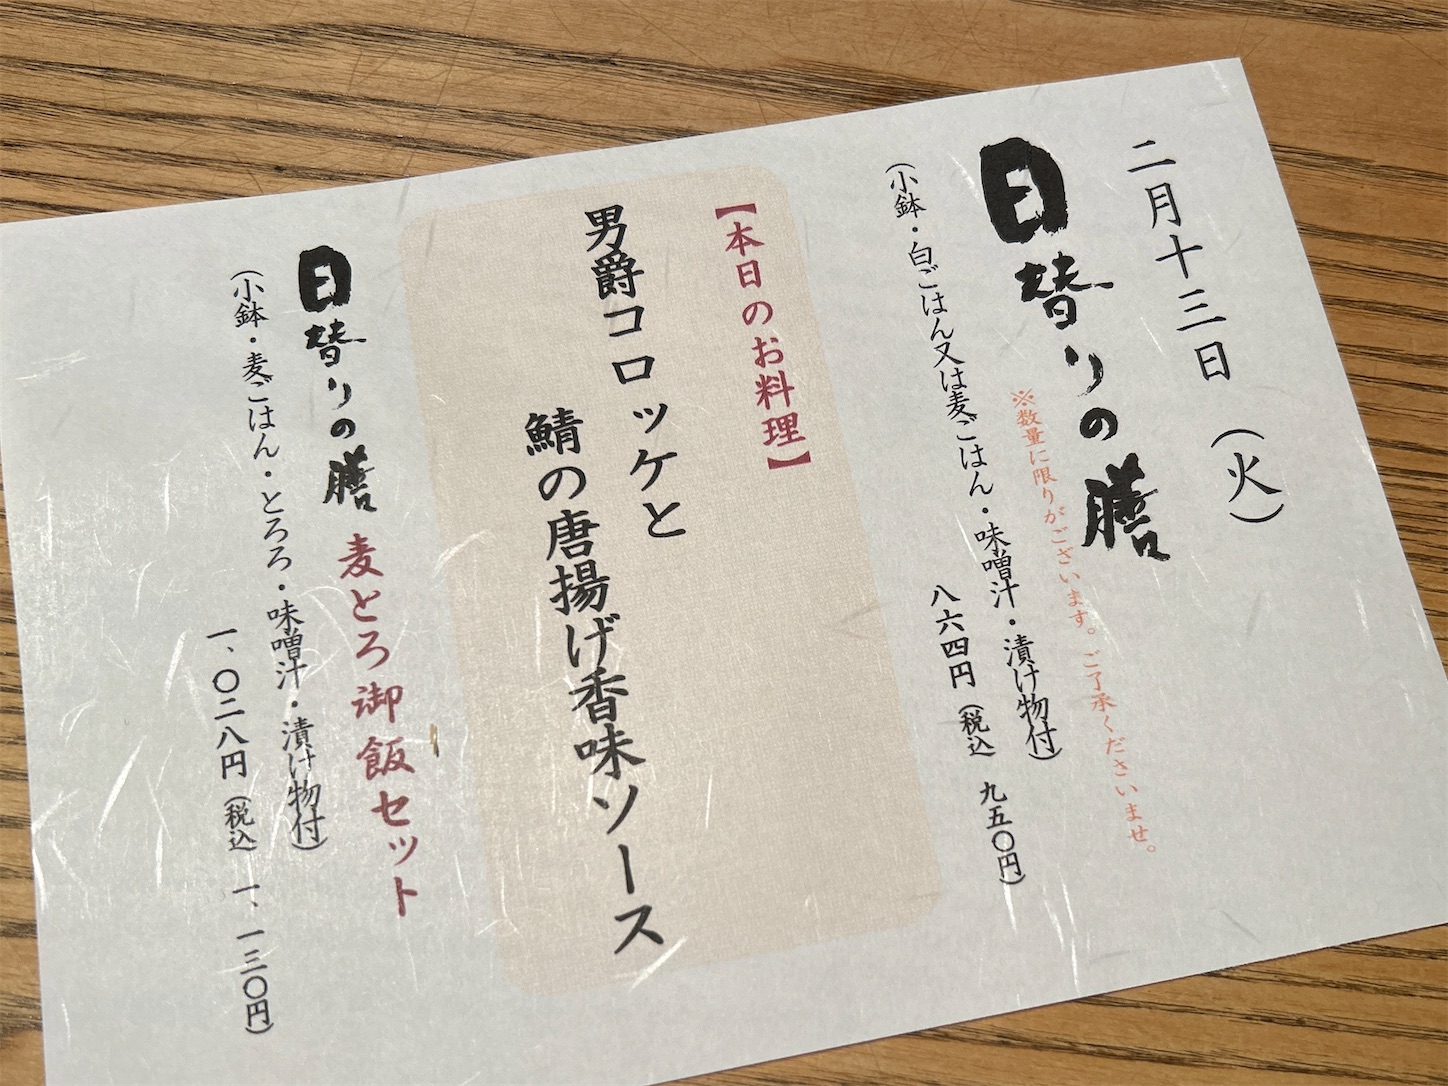 二月十三日（火）
日替りの膳
※数量に限りがございます。ご了承くださいませ。
（小鉢・白ごはん又は麦ごはん・味噌汁・漬け物付）
八六四円（税込　九五〇円）
【本日のお料理】
男爵コロッケと
鯖の唐揚げ香味ソース
日替りの膳　麦とろ御飯セット
（小鉢・麦ごはん・とろろ・味噌汁・漬け物付）
一、〇二八円（税込　一、一三〇円）